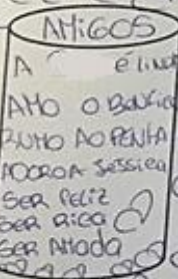 AMIGOS
A É LINDA
AMO O Benfica
RUMO AO PENTA
ADOROA Jessica
SER FELIZ
SER RICA
SER AMADA